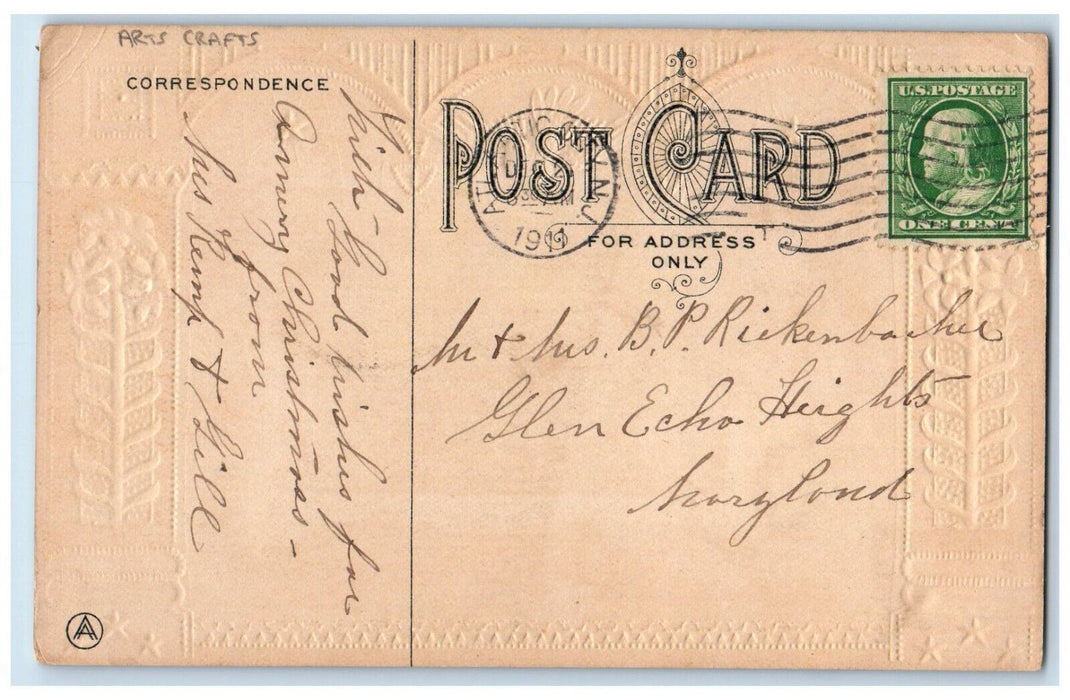 ARTS CRAFTS
CORRESPONDENCE
With Good Wishes for
a Merry Christmas -
from
Mrs Kemp & Gill
POST CARD
FOR ADDRESS
ONLY
ATLANTIC CITY, N.J.
1911
U.S. POSTAGE
ONE CENT
Mr & Mrs. B. P. Rickenbacher
Glen Echo Heights
Maryland
AA